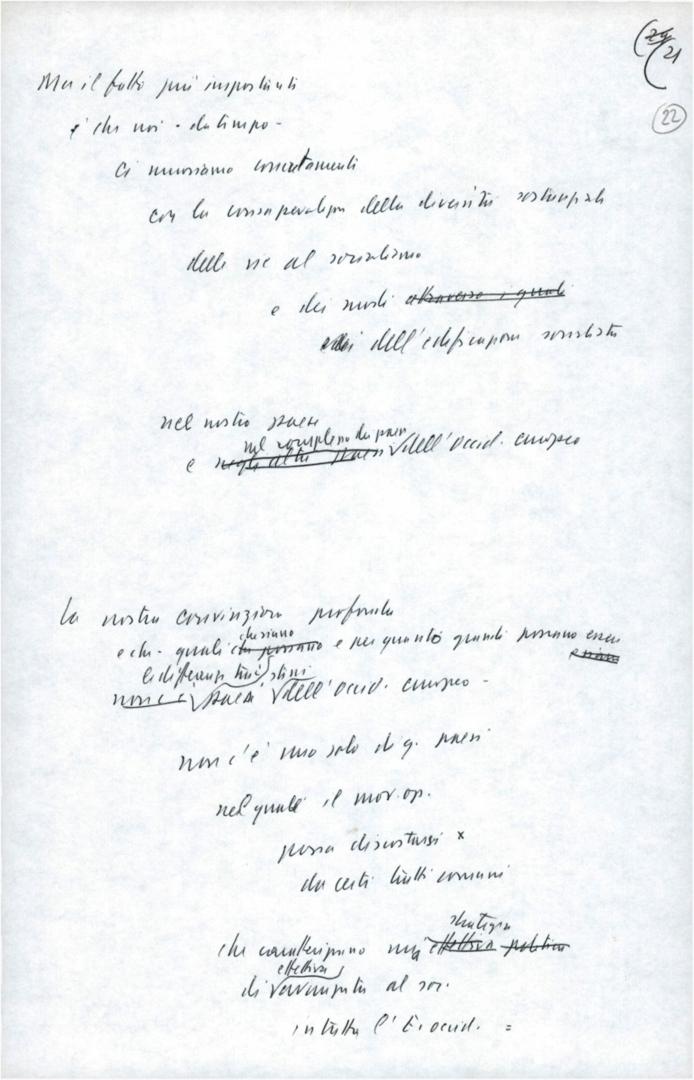 21
22
Ma il fatto più importante
è che noi - da tempo -
ci muoviamo concretamente
con la consapevolezza della diversità sostanziale
delle vie al socialismo
e dei modi attraverso i quali
dell'edificazione socialista
nel nostro paese
nel complesso dei paesi
e negli altri paesi dell'Occid. europeo
La nostra convinzione profonda
che siano
è che - quali che possano e per quanto grandi possano essere
le differenze tra i
non c'è paesi dell'Occid. europeo -
non c'è uno solo di q. paesi
nel quale il mov. op.
possa discostarsi x
da certi tratti comuni
strategia
che caratterizzano una effettiva politica
effettiva
di avanzata al soc.
in tutta l'E. occid. =